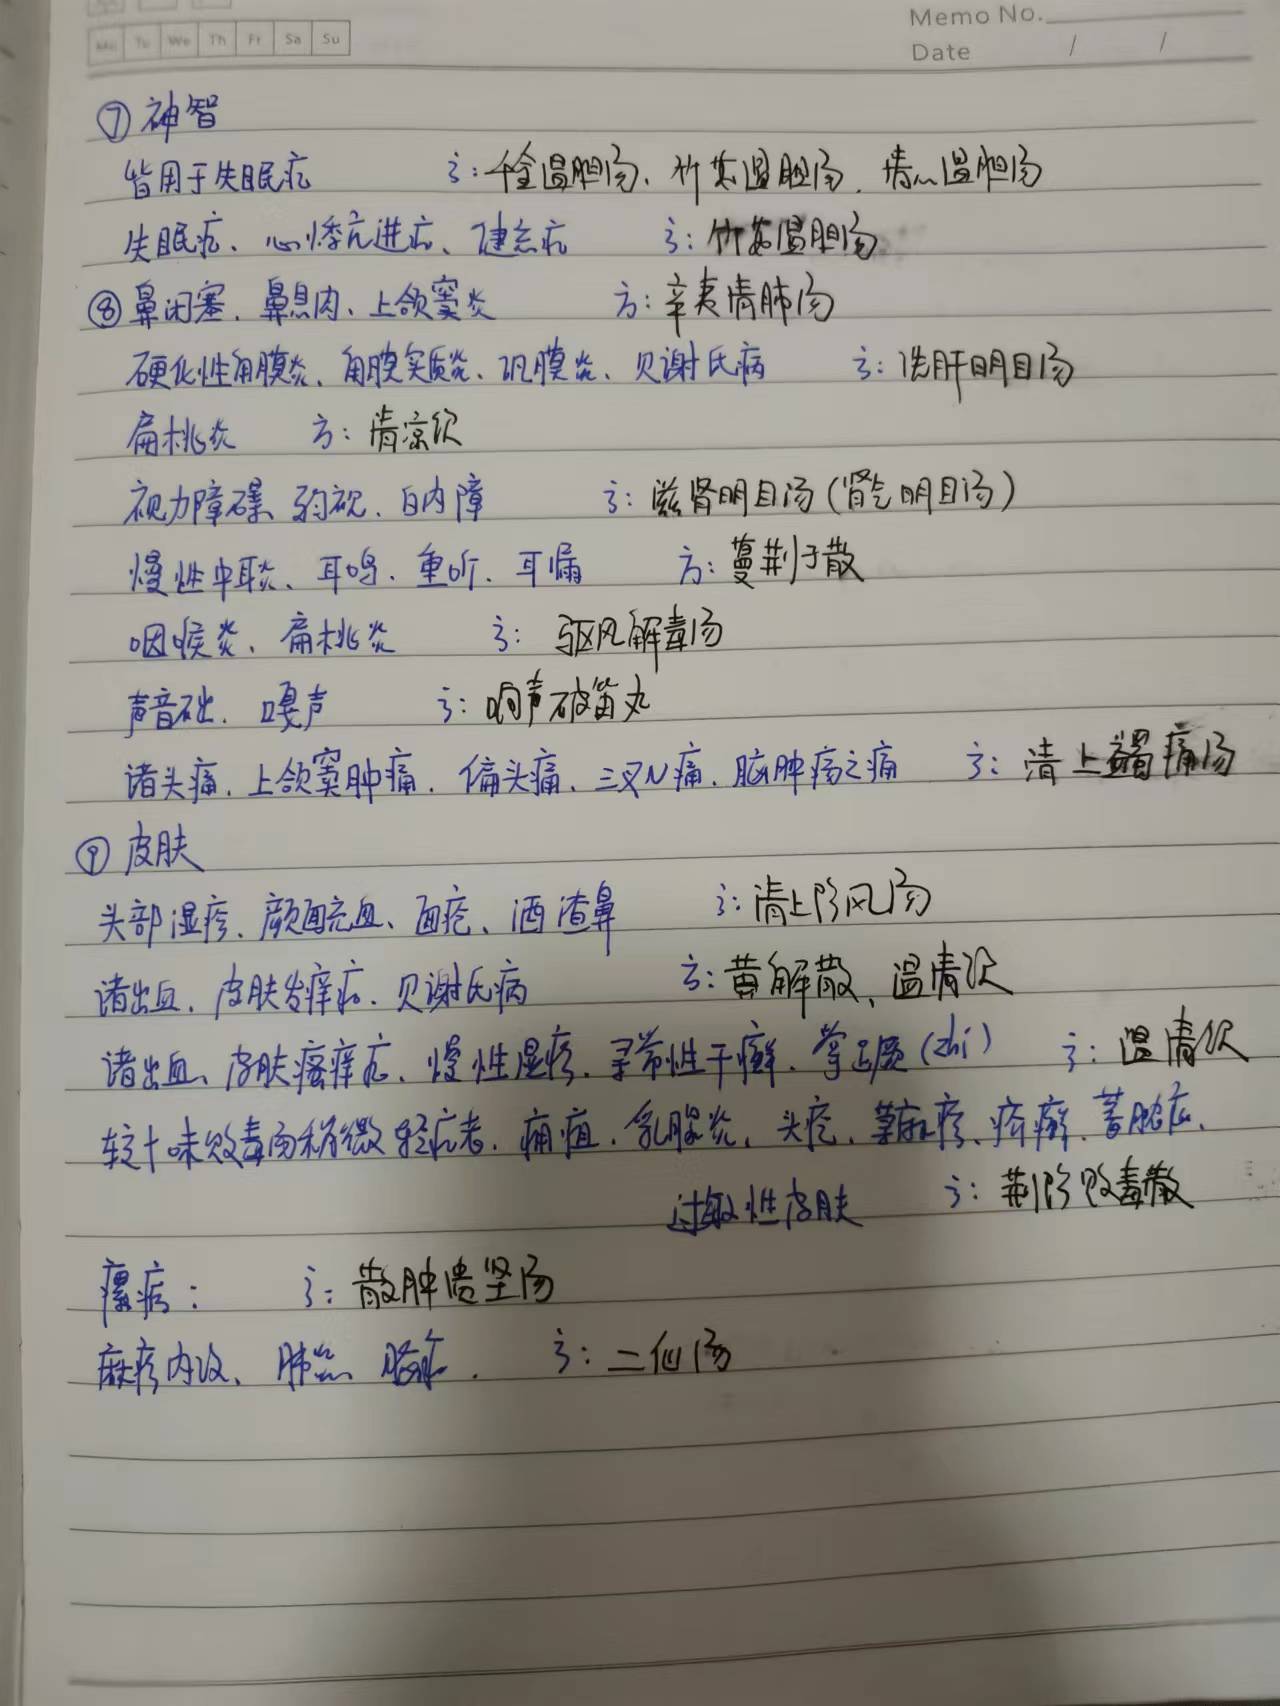 Memo No.
Mo Tu We Th Fr Sa Su
Date / /
⑦ 神智
皆用于失眠症 方:千金温胆汤、竹茹温胆汤、清心温胆汤
失眠症、心悸亢进症、健忘症 方:竹茹温胆汤
⑧ 鼻闭塞、鼻息肉、上颌窦炎 方:辛夷清肺汤
硬化性角膜炎、角膜实质炎、巩膜炎、贝谢氏病 方:洗肝明目汤
扁桃炎 方:清凉饮
视力障碍、弱视、白内障 方:滋肾明目汤(肾气明目汤)
慢性中耳炎、耳鸣、重听、耳漏 方:蔓荆子散
咽喉炎、扁桃炎 方:驱风解毒汤
声音础、嘎声 方:响声破笛丸
诸头痛、上颌窦肿痛、偏头痛、三叉N痛、脑肿疡之痛 方:清上蠲痛汤
⑨ 皮肤
头部湿疹、颜面充血、面疮、酒渣鼻 方:清上防风汤
诸出血、皮肤发痒症、贝谢氏病 方:黄解散、温清饮
诸出血、皮肤瘙痒症、慢性湿疹、寻常性干癣、掌 (zhi) 方:温清饮
较十味败毒汤稍微轻症者、痈疽、乳腺炎、头疮、荨麻疹、疥癣、蓄脓症、
过敏性皮肤 方:荆防败毒散
瘰疬: 方:散肿溃坚汤
麻疹内攻、肺炎、脑症. 方:二仙汤